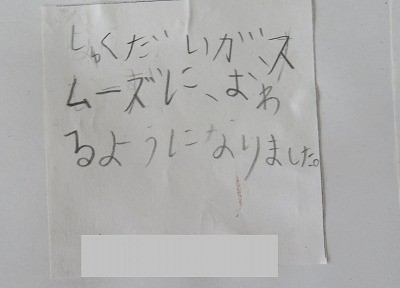 しゅくだいがス
ムーズに、おわ
るようになりました。